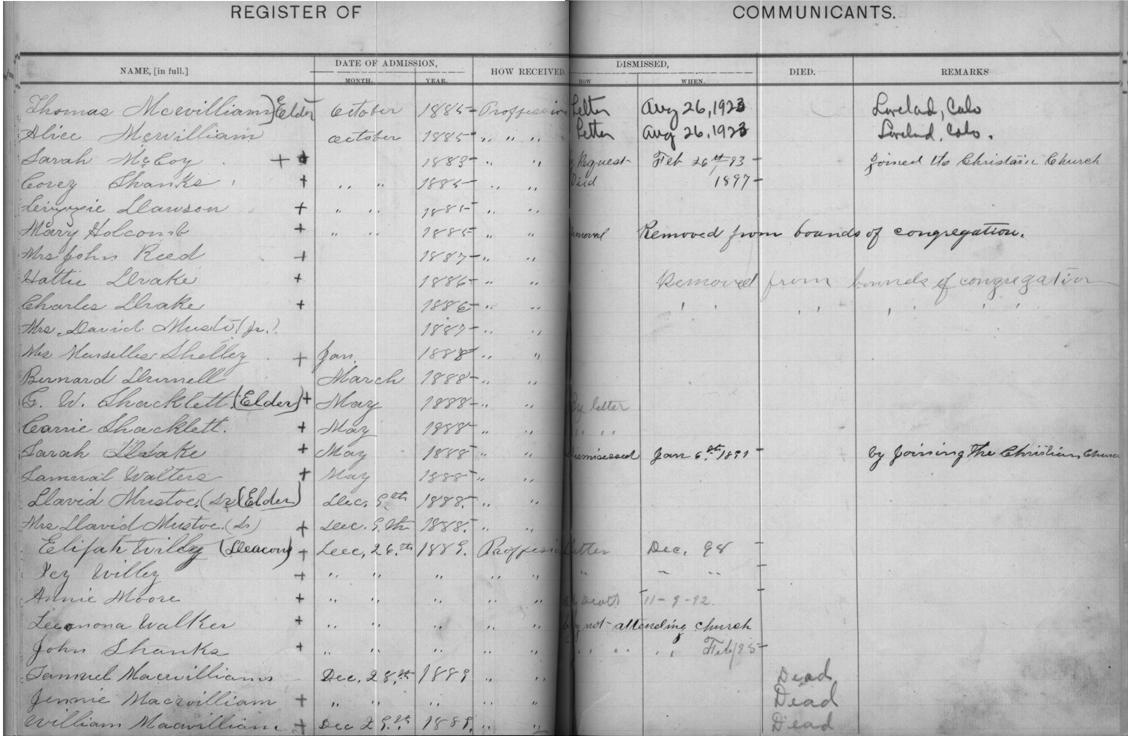 REGISTER OF COMMUNICANTS.
NAME, [in full.] DATE OF ADMISSION, HOW RECEIVED DISMISSED, DIED. REMARKS
MONTH. YEAR. HOW WHEN.
Thomas Mcwilliam Elder October 1885 Proffession Letter Aug 26, 1923 Lovelad, Colo
Alice McWilliam October 1885 " " " Letter Aug 26, 1923 Lovelad, Colo.
Sarah McCoy + + 1883 " " Request Feb 26th 93 Joined the Christain Church
Corey Shanks + " " 1885 " " Died 1897
Dawson + " " 1885 " "
Mary Holcomb + " " 1885 " " Removed from bounds of congregation.
Mrs John Reed + 1887 " "
Hattie Drake + 1886 " " Removed from bounds of congregation
Charles Drake + 1886 " " " " " " "
Mrs. David Musto (Jr.) 1887 " "
Mrs Marsellis Shelley + Jan. 1888 " "
Bernard Durnell March 1888 " "
G. W. Shacklett (Elder) + May 1888 " " By letter
Carrie Shacklett. + May 1888 " " " "
Sarah Drake + May 1888 " " Jan 6th 1891 by Joining The Christian Church
Walters + May 1888 " "
David Mustoe (Sr) (Elder) Dec. 9th 1888 " "
Mrs David Mustoe (Sr) + Dec. 9th 1888 " "
Elijah Willey (Deacon) + Dec, 26th 1889. Proffession Letter Dec. 98
Willey + " " " " " " " " "
Annie Moore + " " " " " 11-9-92
Walker + " " " " " not attending church
John Shanks + " " " " " " " " " Feb/95
Samuel Macwilliams Dec. 28th 1889 " " Dead
Jennie Macwilliam + " " " " " Dead
William Macwilliam + Dec 29th 1889, " " Dead